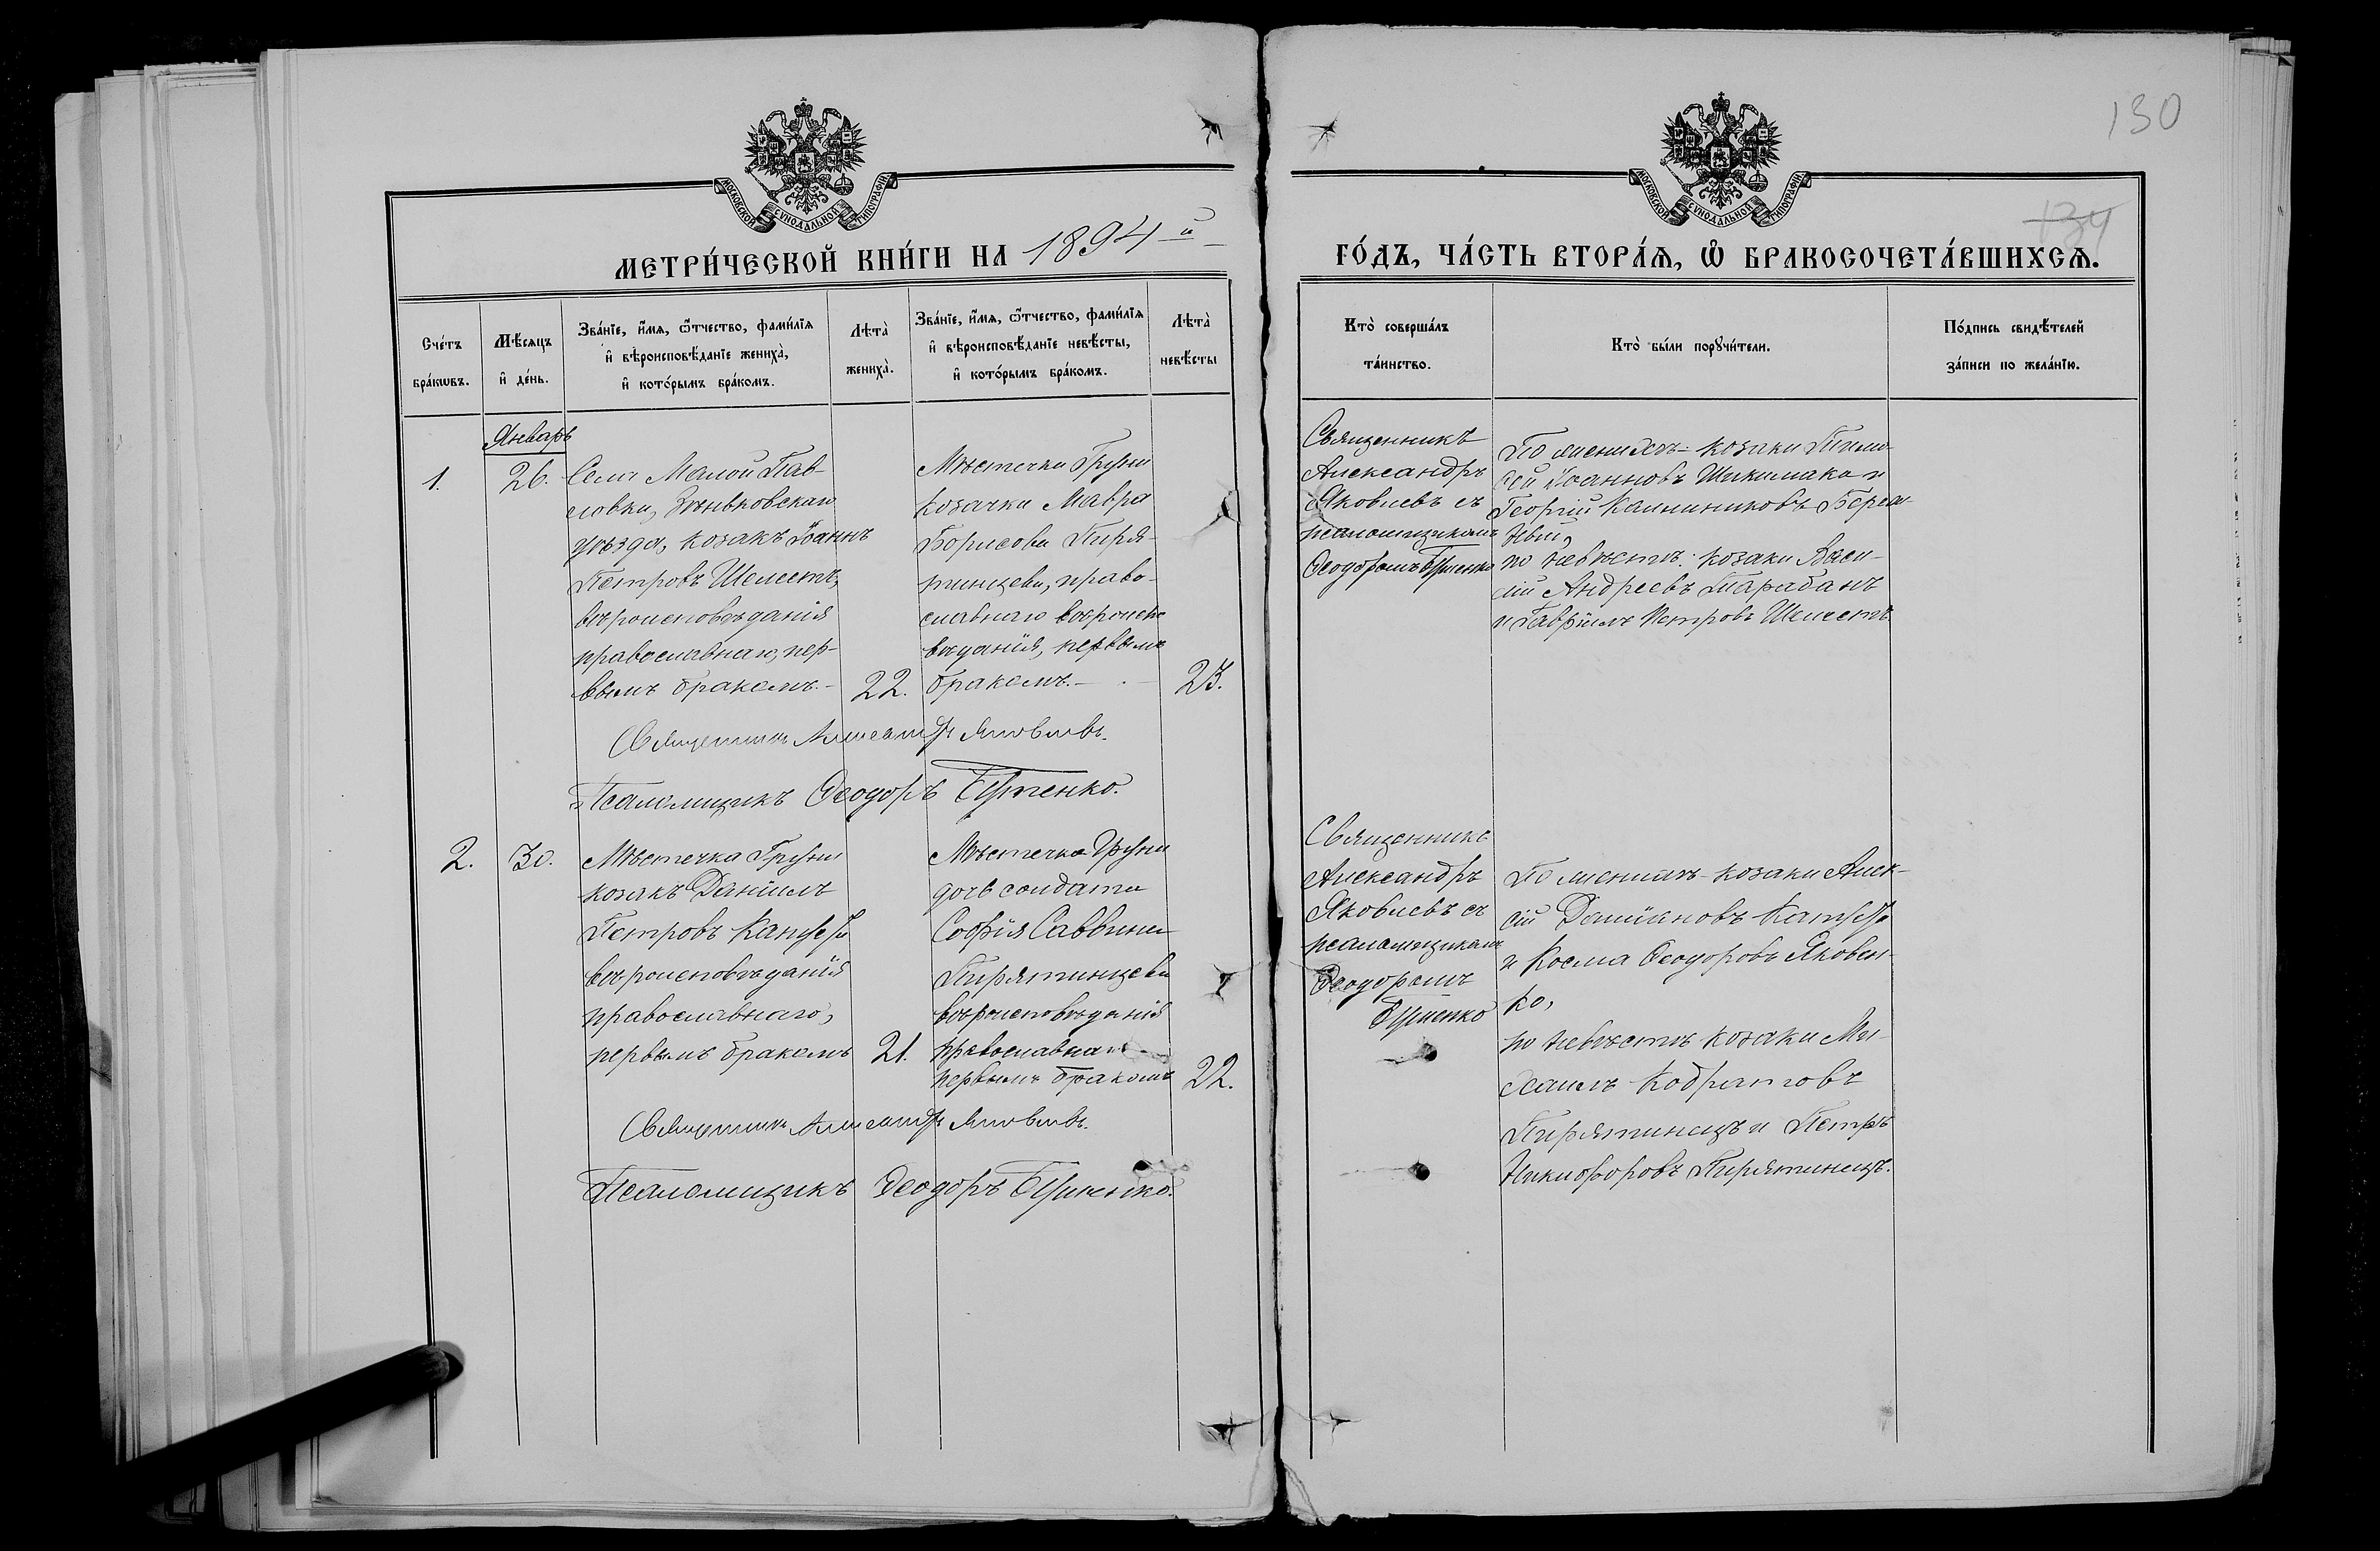 130
134
МОСКОВСКОЙ СѴНОДАЛЬНОЙ ТИПОГРАФІИ
МОСКОВСКОЙ СѴНОДАЛЬНОЙ ТИПОГРАФІИ
МЕТРИ́ЧЕСКОЙ КНИ́ГИ НА 1894-й
ГО́ДЪ, ЧА́СТЬ ВТОРА́Ѧ, Ѽ БРАКОСОЧЕТА́ВШИХСѦ.
Сче́тъ
бра́кѡвъ.
Мѣ́сѧцъ
и҆ де́нь.
Зва́нїе, и҆́мѧ, ѻ҆́тчество, фами́лїѧ
и҆ вѣроисповѣ́данїе жениха̀,
и҆ кото́рымъ бра́комъ.
Лѣта̀
жениха̀.
Зва́нїе, и҆́мѧ, ѻ҆́тчество, фами́лїѧ
и҆ вѣроисповѣ́данїе невѣ́сты,
и҆ кото́рымъ бра́комъ.
Лѣта̀
невѣ́сты
Кто̀ соверша́лъ
та́инство.
Кто̀ бы́ли порꙋчи́тели.
По́дпись свидѣ́телей
за́писи по жела́нїю.
Январь
1.
26.
Села Малой Пав-
ловки, Зѣньковскаго
уѣзда, козакъ Іоаннъ
Петровъ Шелестъ,
вѣроисповѣданія
православнаго, пер-
вымъ бракомъ.-
22.
Мѣстечка Груни
козачка Мавра
Борисова Пиря-
тинцева, право-
славнаго вѣроиспо
вѣданія, первымъ
бракомъ.-
23.
Священникъ
Александръ
Яковлевъ съ
псаломщикомъ
Ѳеодоромъ
По женихѣ- козаки Тимо-
ѳей Іоанновъ Шикимака и
Георгій Каллиниковъ
по невѣстѣ: козаки Васи-
лій Андреевъ Тарабанъ
и Гавріилъ Петровъ Шелестъ.
Священникъ Александръ Яковлевъ.
Псаломщикъ Ѳеодоръ
2.
30.
Мѣстечка Груни
козакъ Даніилъ
Петровъ
вѣроисповѣданія
православнаго,
первымъ бракомъ
21.
Мѣстечка Груни
дочь солдата
Софія Саввина
Пирятинцева
вѣроисповѣданія
православнаго
первымъ бракомъ
22.
Священникъ
Александръ
Яковлевъ съ
псаломщикомъ
Ѳеодоромъ
По женихѣ- козаки Алек-
сій Даміановъ
и Косма Ѳеодоровъ Яковен-
ко,
по невѣстѣ козаки Ми-
хаилъ Кодратовъ
Пирятинецъ и Петръ
Никифоровъ Пирятинецъ.
Священникъ Александръ Яковлевъ.
Псаломщикъ Ѳеодоръ